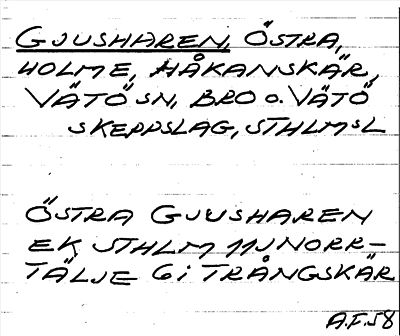 GJUSHAREN, ÖSTRA,
HOLME, HÅKANSKÄR,
VÄTÖ SN, BRO O. VÄTÖ
SKEPPSLAG, STHLMSL
ÖSTRA GJUSHAREN
EK STHLM 11J NORR-
TÄLJE 6i TRÅNGSKÄR
A.F.58